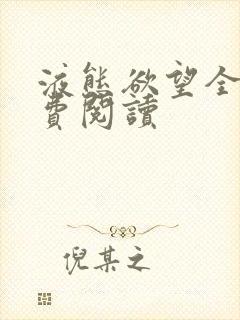 液態欲望全
費閱讀
倪某之